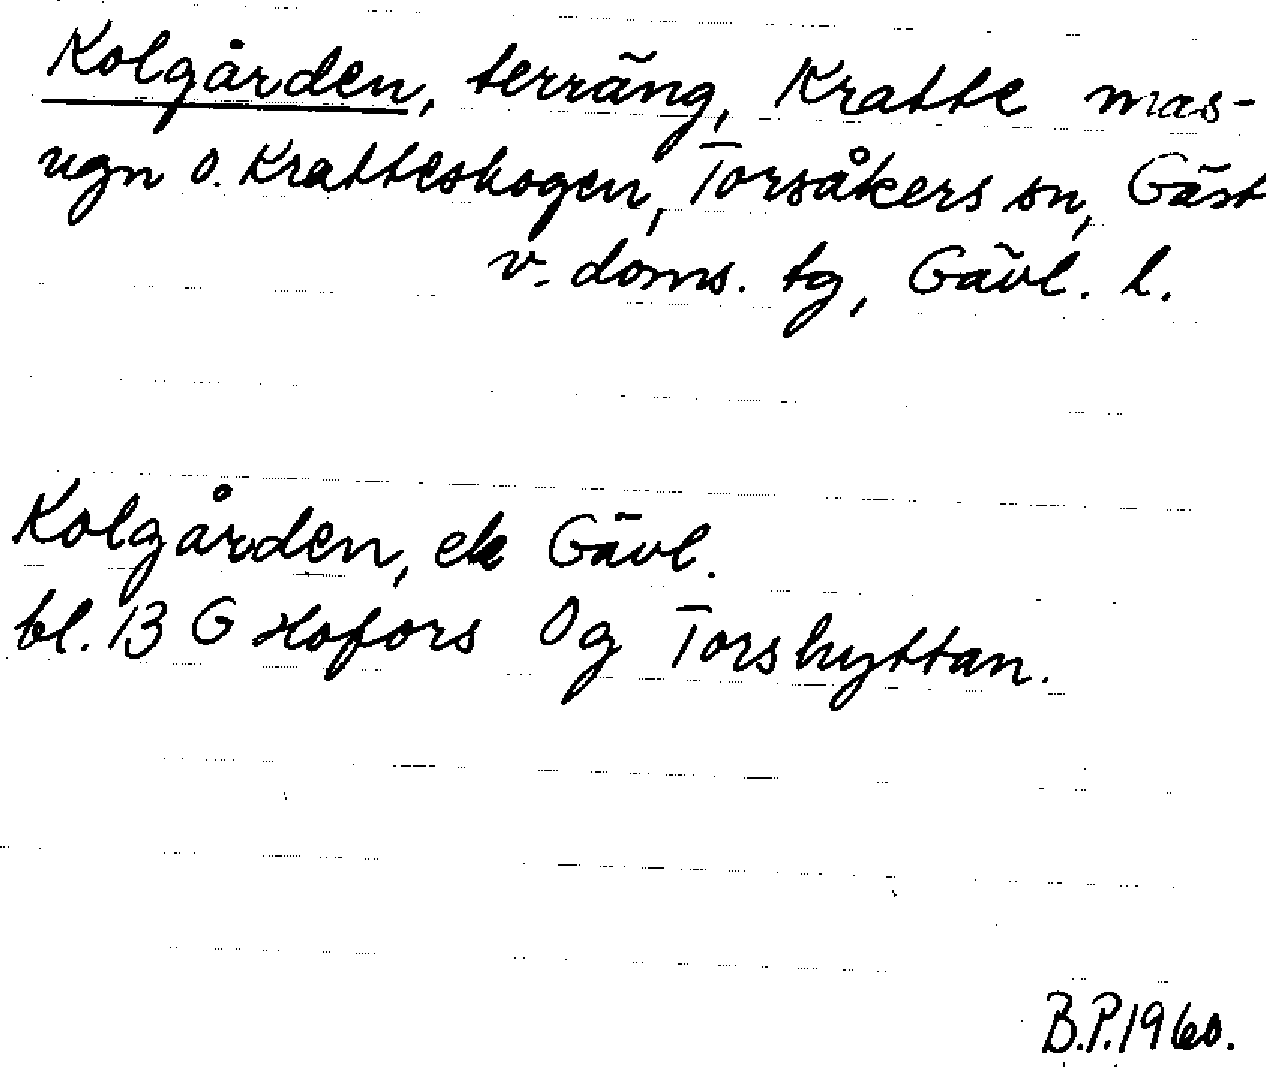 Kolgården, terräng, Kratte mas-
ugn o. Kratteskogen, Torsåkers sn, Gäst
v. doms. tg, Gävl. l.
Kolgården, ek Gävl.
bl. 13 G Hofors Og Torshyttan.
B.P. 1960.